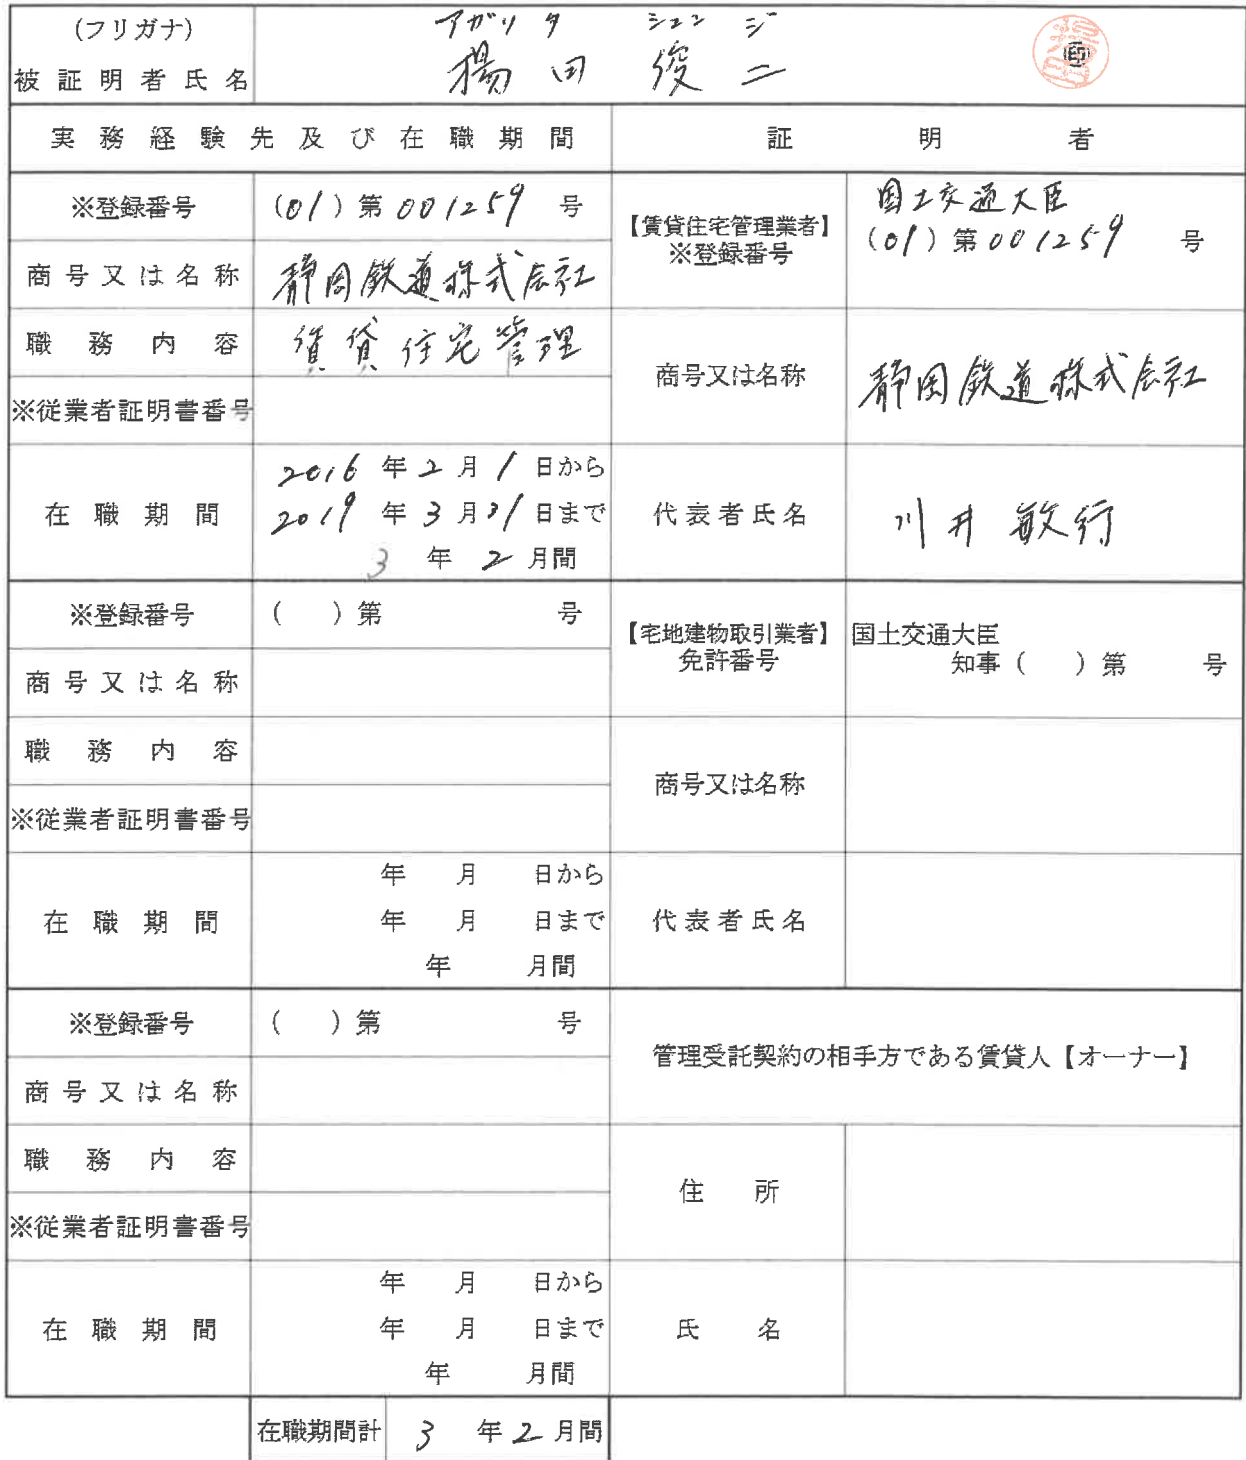 (フリガナ) アガリタ シュンジ
被証明者氏名 揚田 俊二 ㊞
実務経験先及び在職期間 証明者
※登録番号 (01)第001259号
【賃貸住宅管理業者】
※登録番号
国土交通大臣
(01)第001259 号
商号又は名称 静岡鉄道株式会社
職務内容 賃貸住宅管理
商号又は名称 静岡鉄道株式会社
※従業者証明書番号
在職期間
2016年2月1日から
2019年3月31日まで
3年2月間
代表者氏名 川井敏行
※登録番号 ( )第 号
【宅地建物取引業者】
免許番号
国土交通大臣
知事( )第 号
商号又は名称
職務内容
商号又は名称
※従業者証明書番号
在職期間
年 月 日から
年 月 日まで
年 月間
代表者氏名
※登録番号 ( )第 号
管理受託契約の相手方である賃貸人【オーナー】
商号又は名称
職務内容
住所
※従業者証明書番号
在職期間
年 月 日から
年 月 日まで
年 月間
氏名
在職期間計 3年2月間